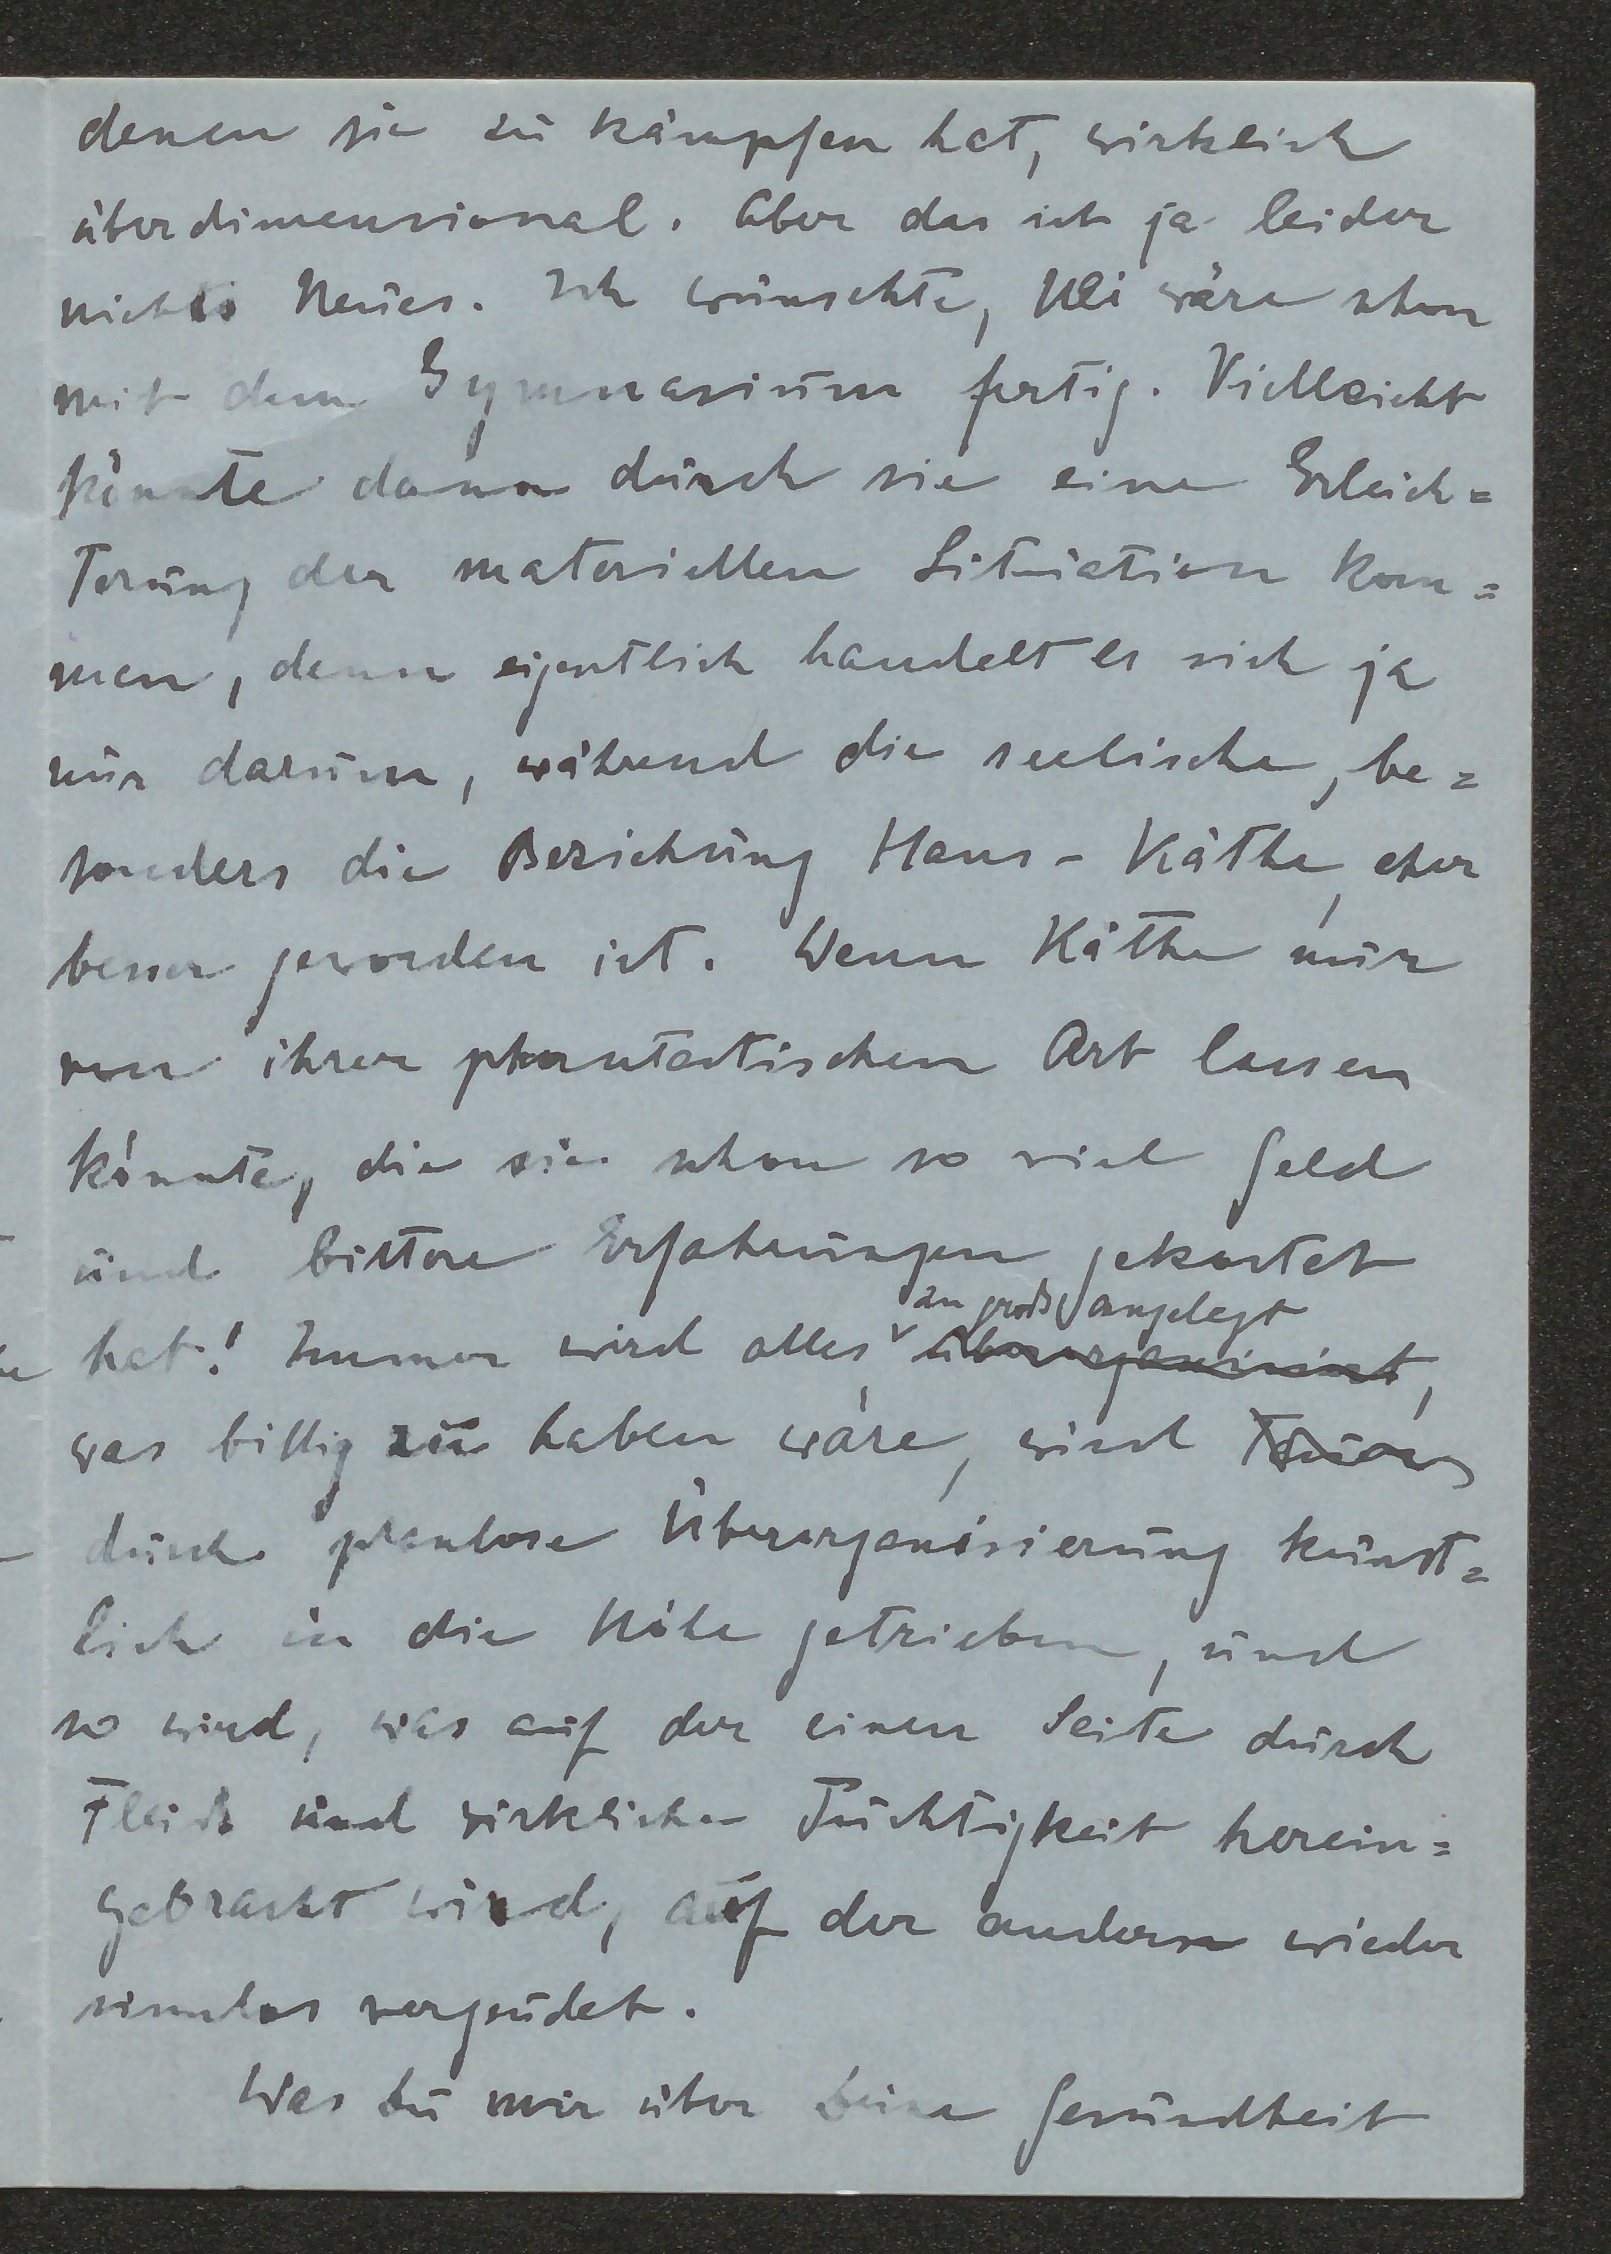 denen sie zu kämpfen hat, wirklich
überdimensional. Aber das ist ja leider
nichts Neues. Ich wünschte, Uli wäre schon
mit dem Gymnasium fertig. Vielleicht
könnte dann durch sie eine Erleich=
terung der materiellen Situation kom=
men, denn eigentlich handelt es sich ja
nur darum, während die seelische, be=
sonders die Beziehung Hans - Käthe, eher
besser geworden ist. Wenn Käthe nur
von ihrer phantastischen Art lassen
könnte, die sie schon so viel Geld
und bittere Erfahrungen gekostet
zu groß angelegt
hat! Immer wird alles, überorganisiert,
was billig zu haben wäre, wird
durch planlose Überorganisierung künst=
lich in die Höhe getrieben, und
so wird, was auf der einen Seite durch
Fleiß und wirkliche Tüchtigkeit herein=
gebracht wird, auf der andern wieder
sinnlos vergeudet.
Was Du mir über Deine Gesundheit